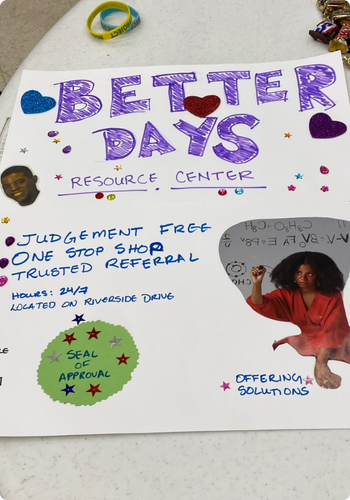 BETTER
DAYS
RESOURCE CENTER
JUDGEMENT FREE
ONE STOP SHOP
TRUSTED REFERRAL
HOURS: 24/7
LOCATED ON RIVERSIDE DRIVE
SEAL
OF
APPROVAL
OFFERING
SOLUTIONS